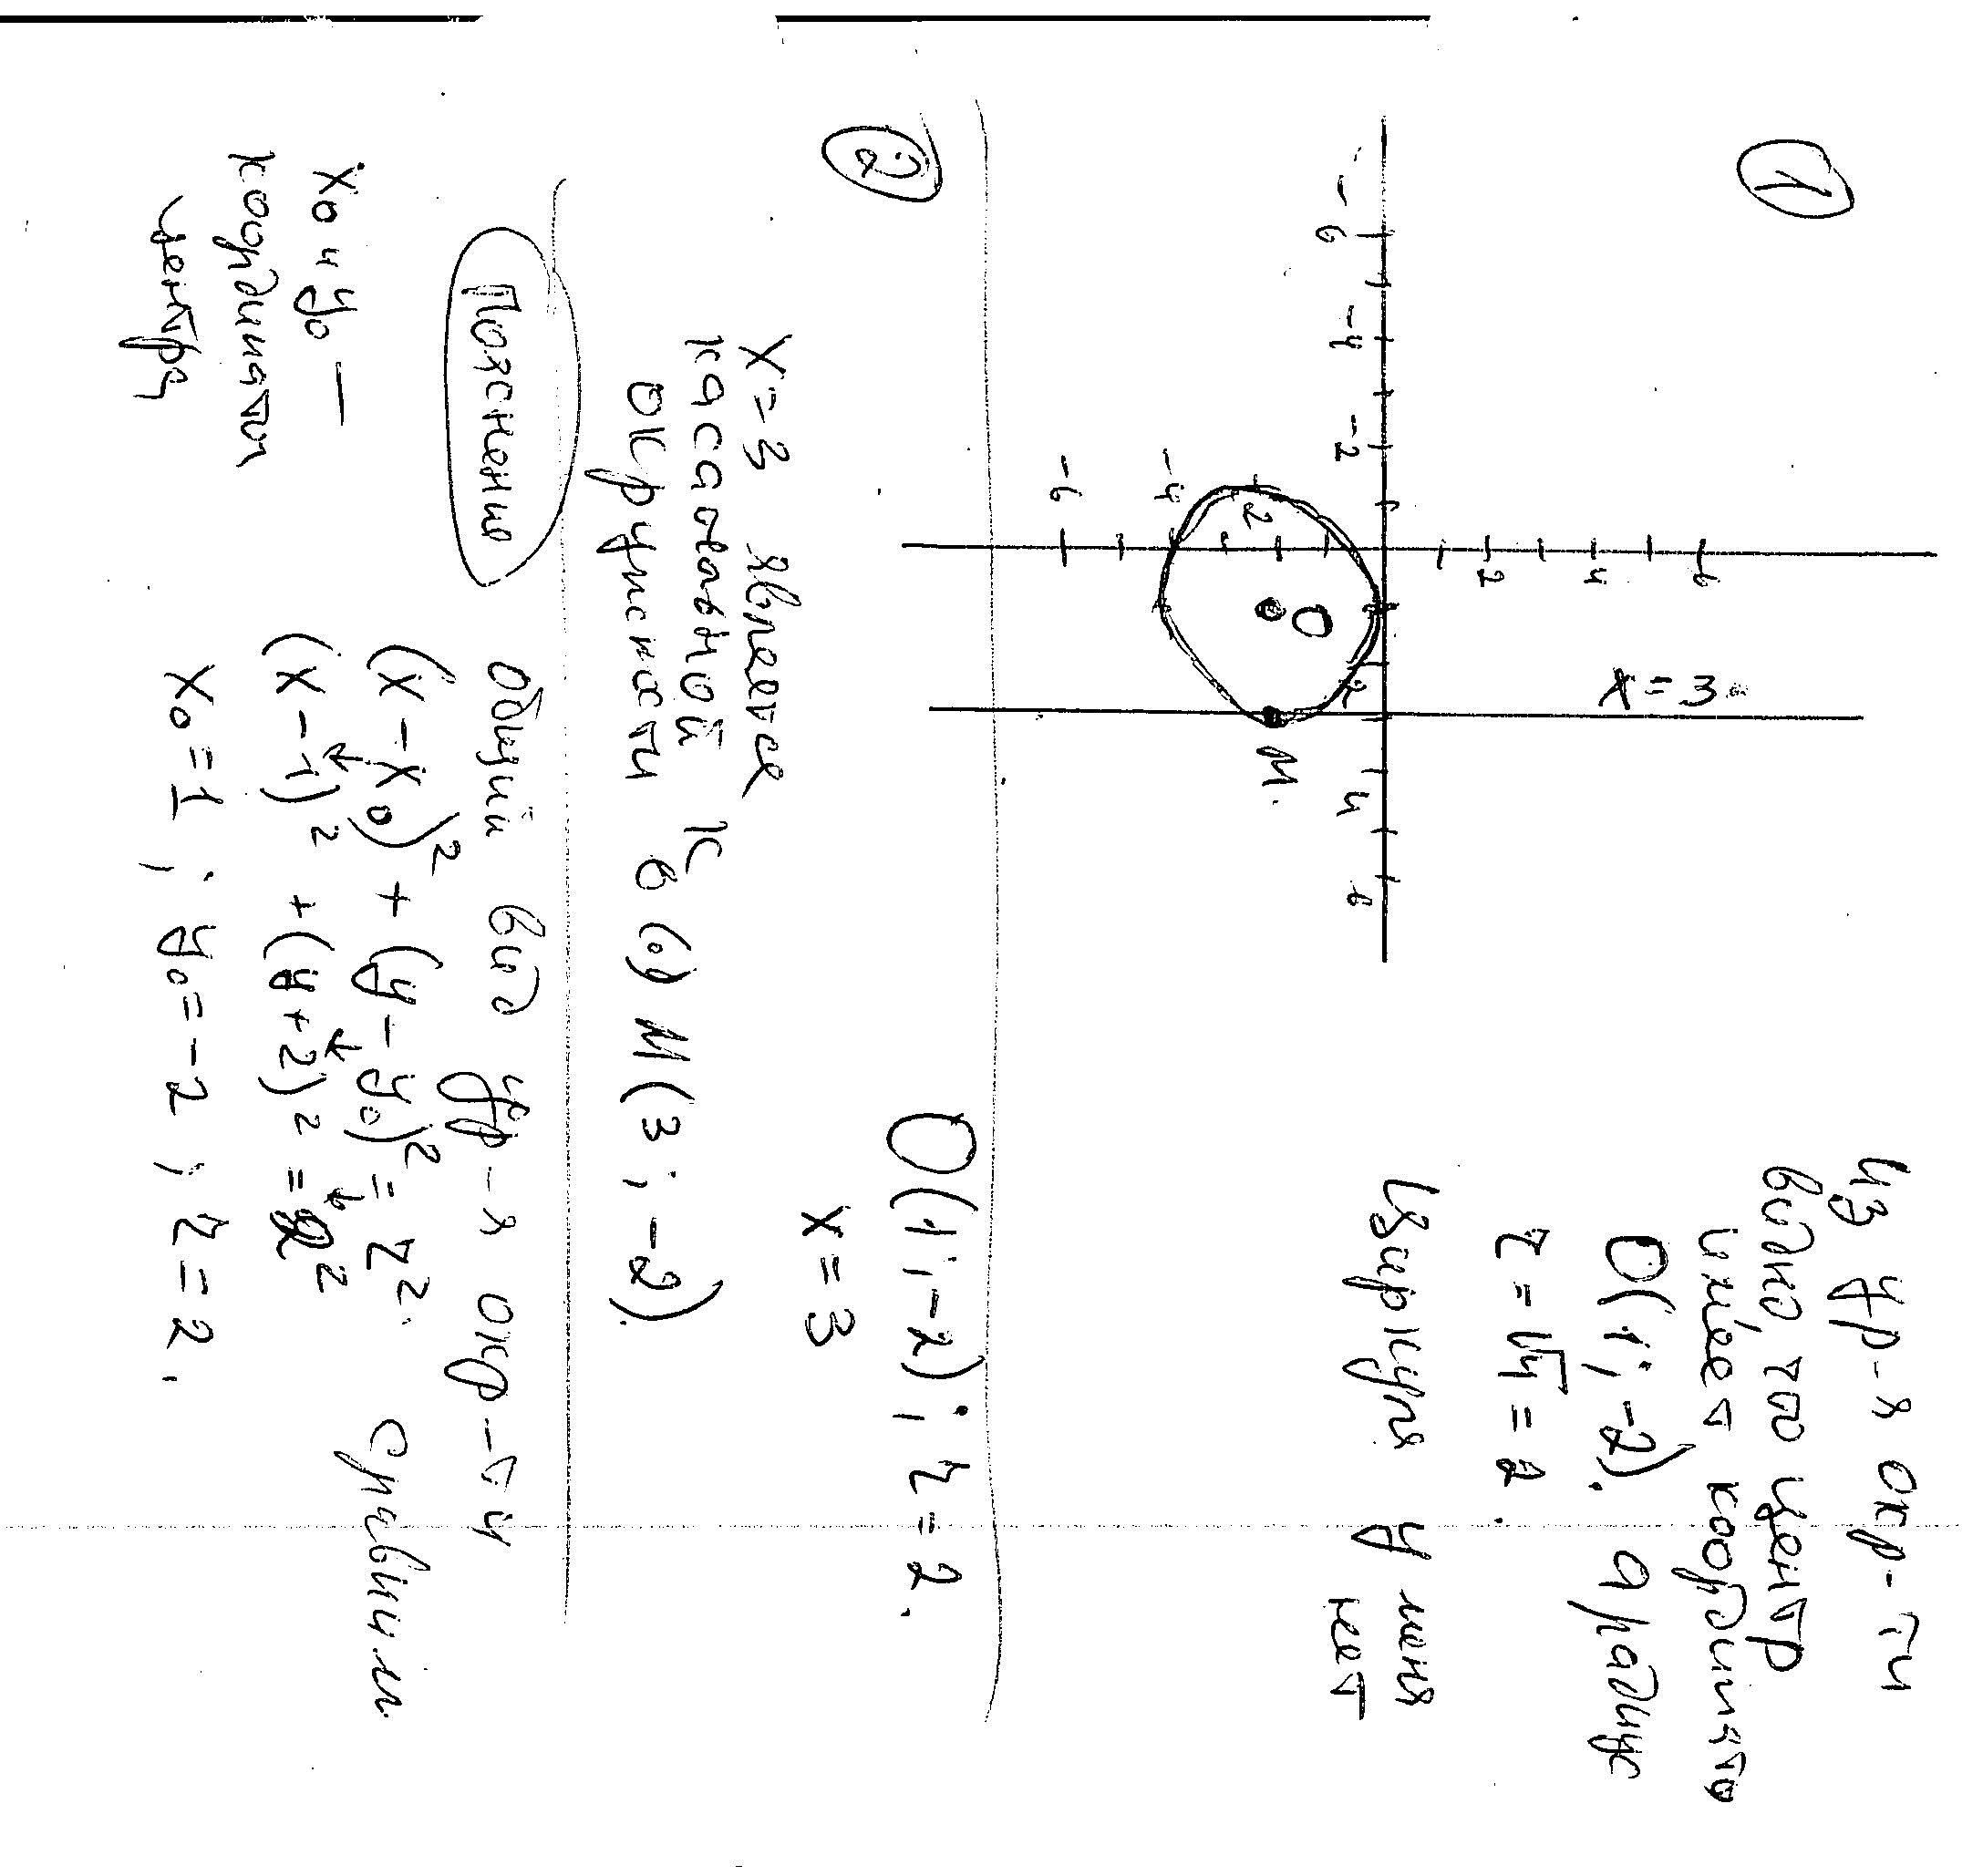 1
Из ур-я окр-ти
видно, что центр
имеет координаты
O(1; -2). а радиус
r = √4 = 2.
Циркуля у меня
нет
6
4
2
x = 3
-6
-4
-2
2
4
6
O
M.
-2
-4
-6
2
O(1; -2); r = 2.
x = 3
x = 3 является
касательной к
окружности в (.) M(3; -2).
Пояснение
Общий вид ур-я окр-ти
(x - x₀)² + (y - y₀)² = r². Сравним
(x - 1)² + (y + 2)² = 2²
x₀ = 1; y₀ = -2, r = 2.
x₀ и y₀ —
координаты
центра